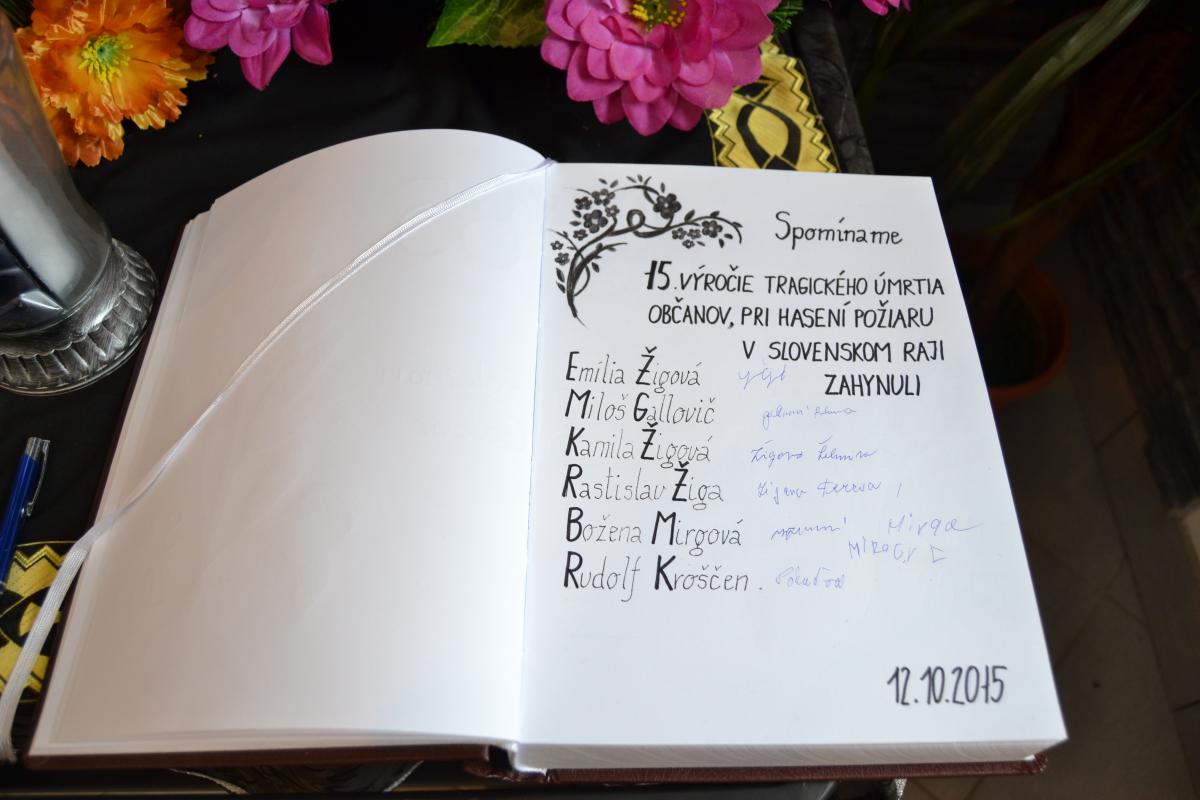 Spomíname
15. VÝROČIE TRAGICKÉHO ÚMRTIA
OBČANOV, PRI HASENÍ POŽIARU
V SLOVENSKOM RAJI
ZAHYNULI
Emília Žigová
Miloš Gallovič
Kamila Žigová
Rastislav Žiga
Božena Mirgová Mirga
Rudolf Kroščen.
12.10.2015